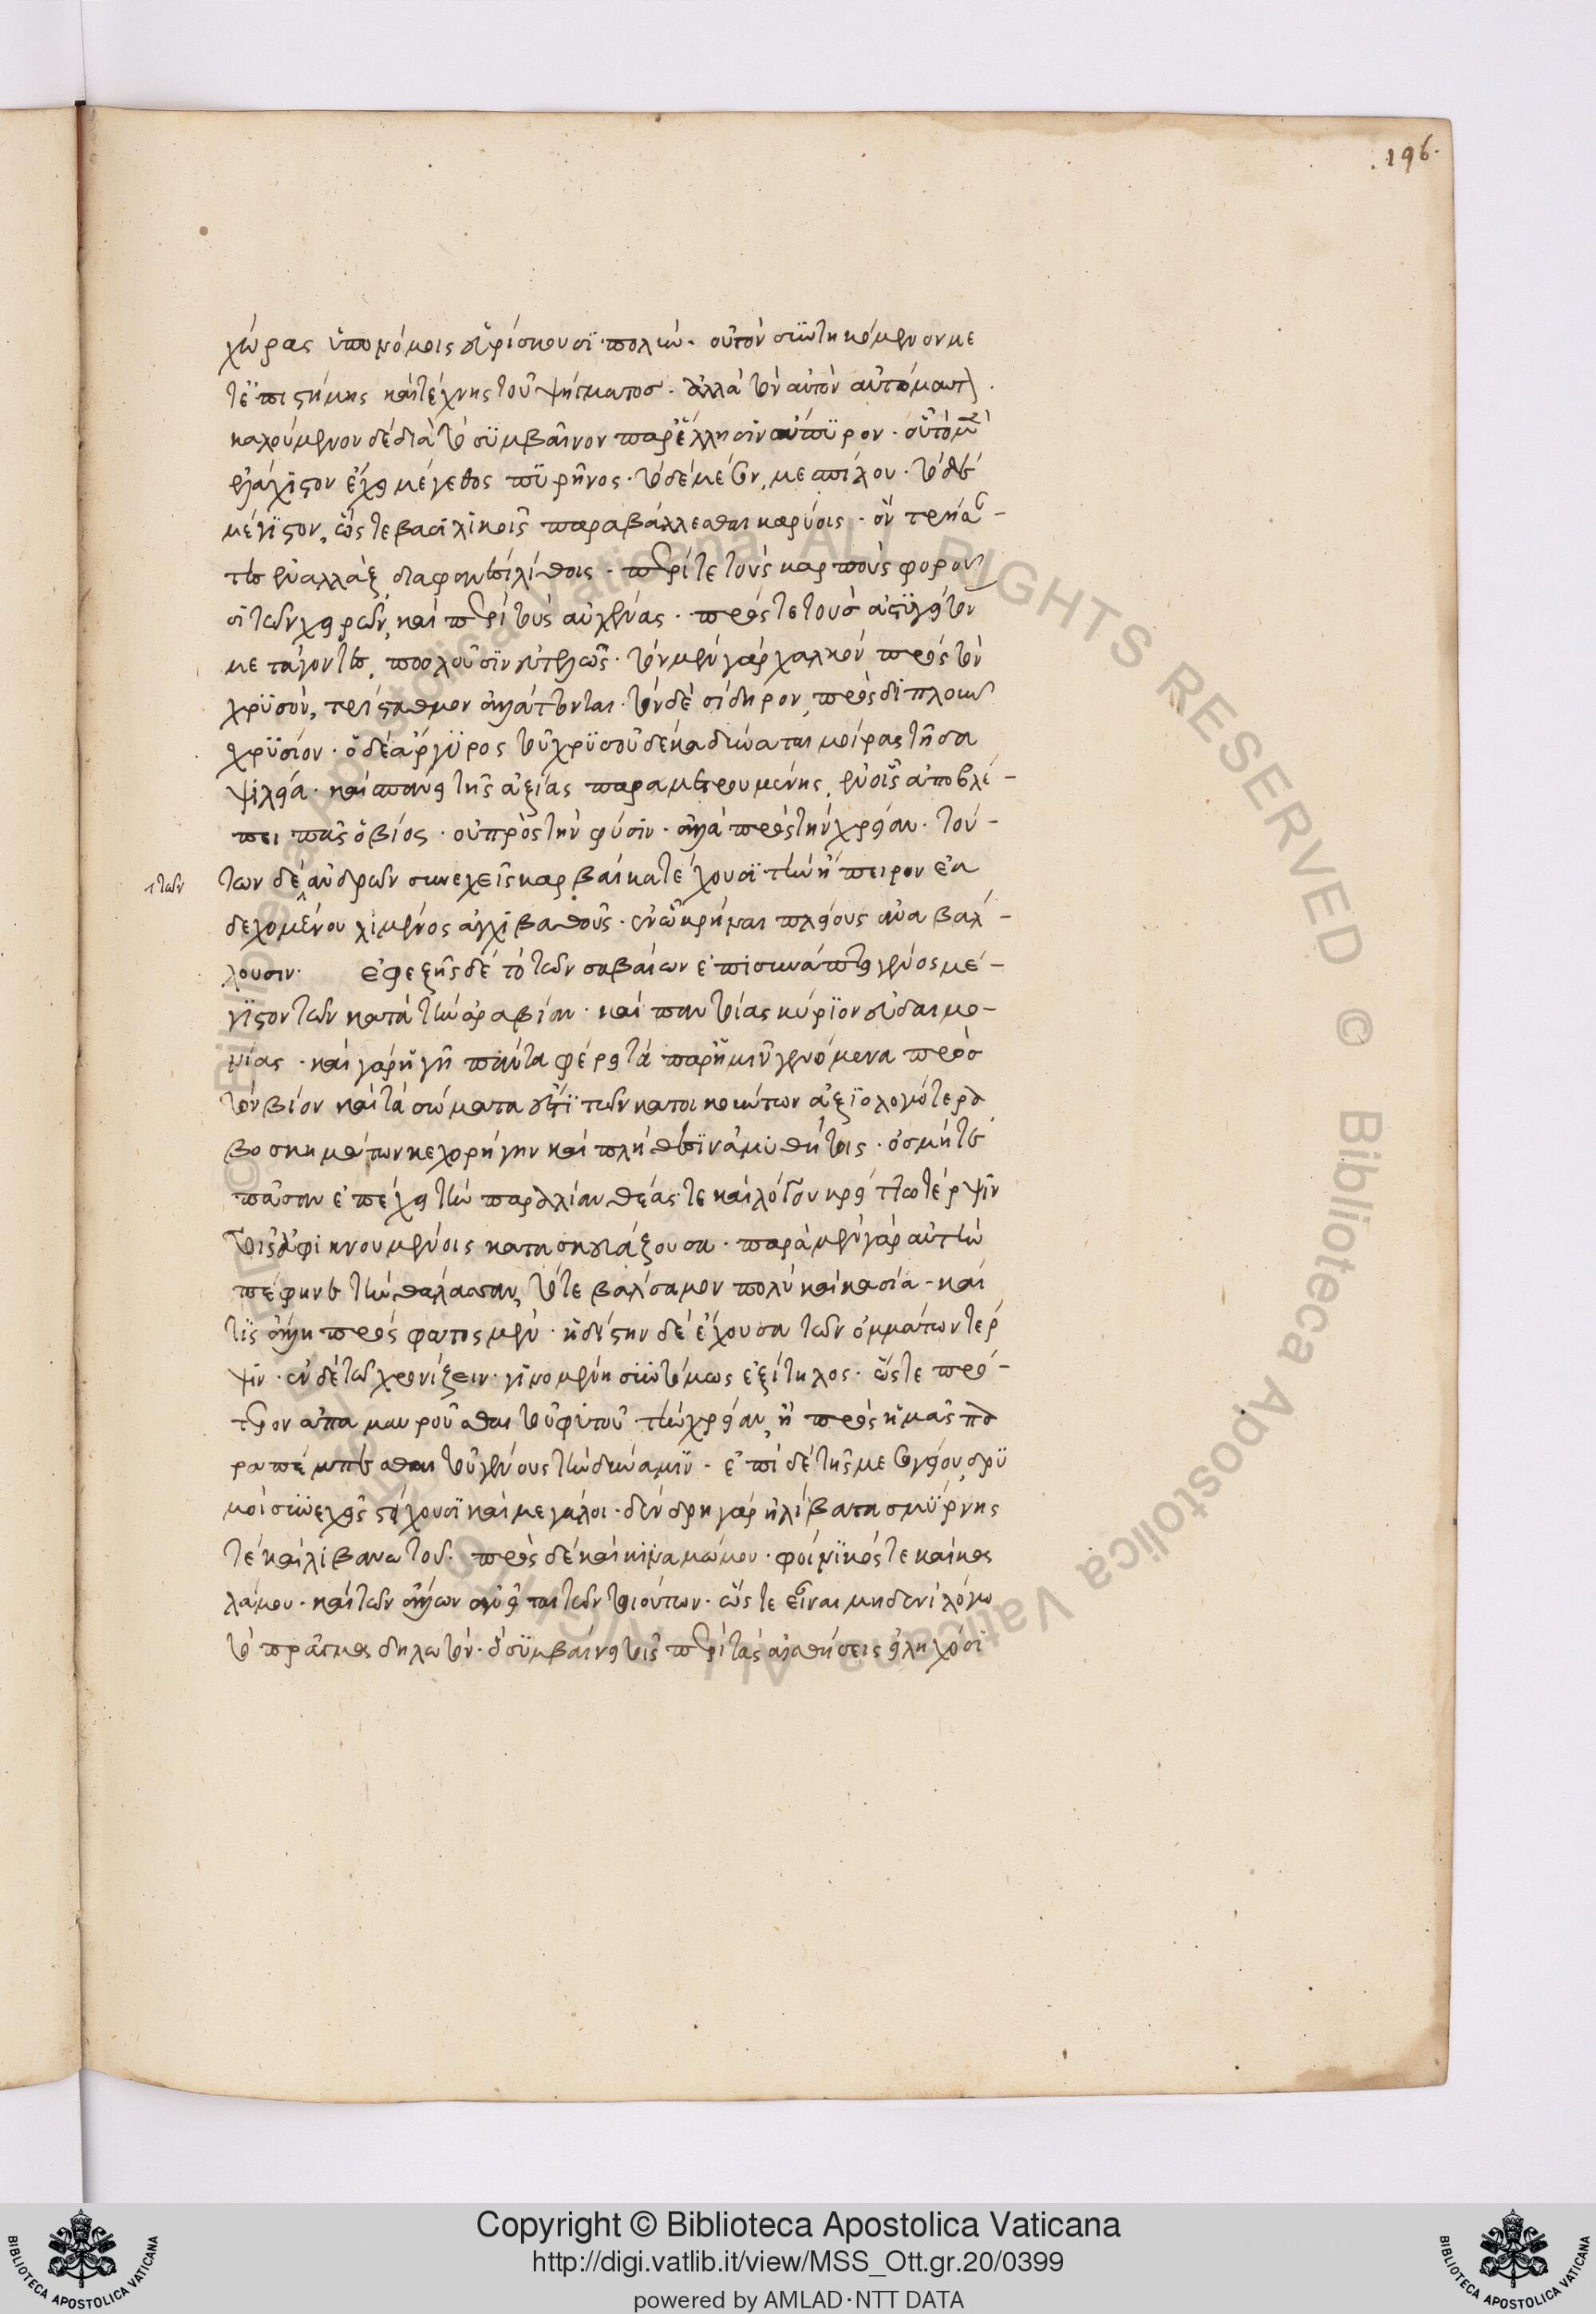 .196.
χώρας ὑπονόμοις εὑρίσκουσι πολύν. οὐ τὸν συντηκόμενον με
τ' ἐπιστήμης καὶ τέχνης τοῦ ψήγματος. ἀλλὰ τὸν αὐτὸν αὐτόματ
καλούμενον δὲ διὰ τὸ συμβαῖνον παρ' ἕλλησιν ἄπυρον. οὗ τὸ μὲν
ἐλάχιστον ἔχει μέγεθος πυρῆνος. τὸ δὲ μέσον, μεσπίλου. τὸ δὲ
μέγιστον, ὥστε βασιλικοῖς παραβάλλεσθαι καρύοις. ὃν τρήσαν-
τες ἐναλλὰξ διαφανέσι λίθοις. περί τε τοὺς καρποὺς φοροῦ
σι τῶν χειρῶν, καὶ περὶ τοὺς αὐχένας. πρός τε τοὺς ἀστυγείτον
μετάγοντες, πωλοῦσιν εὐτελῶς. τὸν μὲν γὰρ χαλκὸν πρὸς τὸν
χρυσὸν, τρίσταθμον ἀλλάτονται. τὸν δὲ σίδηρον, πρὸς διπλοῦν
χρυσίον. ὁ δὲ ἄργυρος τοῦ χρυσοῦ δέκα δύναται μοίρας τῆς α
ψιλεία. καὶ σπάνει τῆς ἀξίας παραμετρουμένης, ἐν οἷς ἀποβλέ-
πει πᾶς ὁ βίος. οὐ πρὸς τὴν φύσιν. ἀλλὰ πρὸς τὴν χρείαν. τού-
των δὲ ἀνδρῶν συνεχεῖς καρβαὶ κατέχουσι τὴν ἤπειρον ἐκ
των
δεχομένου λιμένος ἀγχιβαθοῦς. ἐν ᾧ κρῆναι πλείους ἀναβάλ-
λουσιν. ἐφεξῆς δὲ τὸ τῶν σαβαίων ἐπισυνάπτει γένος μέ-
γιστον τῶν κατὰ τὴν ἀραβίαν. καὶ παντοίας κύριον εὐδαιμο-
νίας. καὶ γὰρ ἡ γῆ πάντα φέρει τὰ παρ' ἡμῖν γενόμενα πρὸς
τὸν βίον καὶ τὰ σώματα ἐστὶ τῶν κατοικούντων ἀξιολογότερα
βοσκημάτων κεχορήγην καὶ πλήθεσιν ἀμυθήτοις. ὀσμή τε
πᾶσαν ἐπέχει τὴν παραλίαν θέας τε καὶ λόγου κρείττω τέρψιν
τοῖς ἀφικνουμένοις κατασκευάζουσα. παρὰ μὲν γὰρ αὐτὴν
πέφηνε τὴν θάλασσαν, τό τε βάλσαμον πολὺ καὶ κασία. καὶ
τις ἄλλη πρόσφατος μὲν. ἡδίστην δὲ ἔχουσα τῶν ὀμμάτων τέρ
ψιν. ἐν δὲ τῷ χρονίζειν. γινομένη συντόμως ἐξίτηλος. ὥστε πρό-
τερον ἀπαμαυροῦσθαι τοῦ φυτοῦ τὴν χρείαν, ἢ πρὸς ἡμᾶς πα
ραπέμπεσθαι τοῦ γένους τὴν δύναμιν. ἐπὶ δὲ τῆς μεσογείου δρυ
μοὶ συνεχεῖς ἔχουσι καὶ μεγάλοι. δένδρη γὰρ ἠλίβατα σμύρνης
τὲ καὶ λιβανωτοῦ. πρὸς δὲ καὶ κιναμώμου. φοίνικός τε καὶ κα
λάμου. καὶ τῶν ἄλλων ἀνεῖται τῶν τοιούτων. ὥστε εἶναι μηδενὶ λόγω
τὸ πρᾶγμα δηλωτόν. ὃ συμβαίνει τοῖς περὶ τὰς αἰσθήσεις εἰληχόσι
Copyright © Biblioteca Apostolica Vaticana
http://digi.vatlib.it/view/MSS_Ott.gr.20/0399
powered by AMLAD·NTT DATA
BIBLIOTECA APOSTOLICA VATICANA
BIBLIOTECA APOSTOLICA VATICANA
© Biblioteca Apostolica Vaticana ALL RIGHTS RESERVED © Biblioteca Apostolica Vaticana ALL RIGHTS